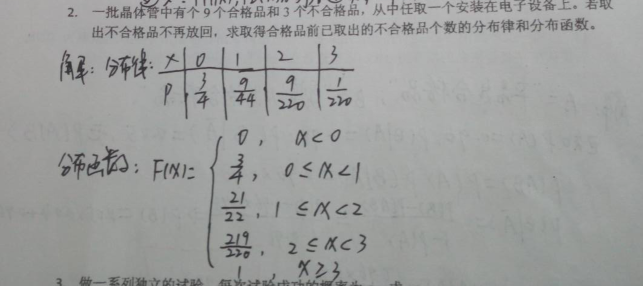 2. 一批晶体管中有个 9 个合格品和 3 个不合格品，从中任取一个安装在电子设备上。若取
出不合格品不再放回，求取得合格品前已取出的不合格品个数的分布律和分布函数。
解：分布律： X 0 1 2 3
P 3/4 9/44 9/220 1/220
分布函数：F(x)= { 0, x<0
3/4, 0≤x<1
21/22, 1≤x<2
219/220, 2≤x<3
1, x≥3
3. 做一系列独立的试验，每次试验成功的概率为